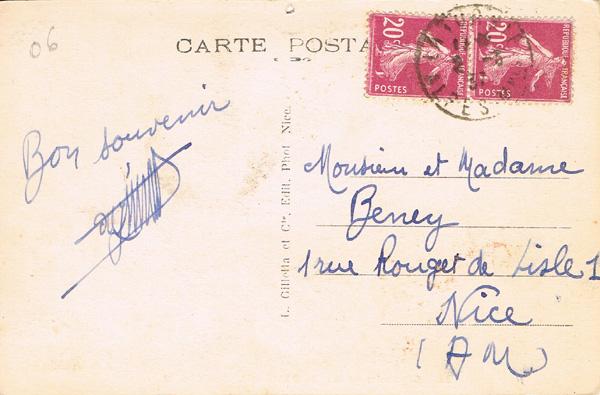 06
CARTE POSTA
20c
REPUBLIQUE FRANÇAISE
POSTES
20c
REPUBLIQUE FRANÇAISE
POSTES
Bon souvenir
L. Gilletta et Cie, Edit. Phot. Nice.
Monsieur et Madame
Beney
1 rue Rouget de Lisle 1
Nice
(A M)